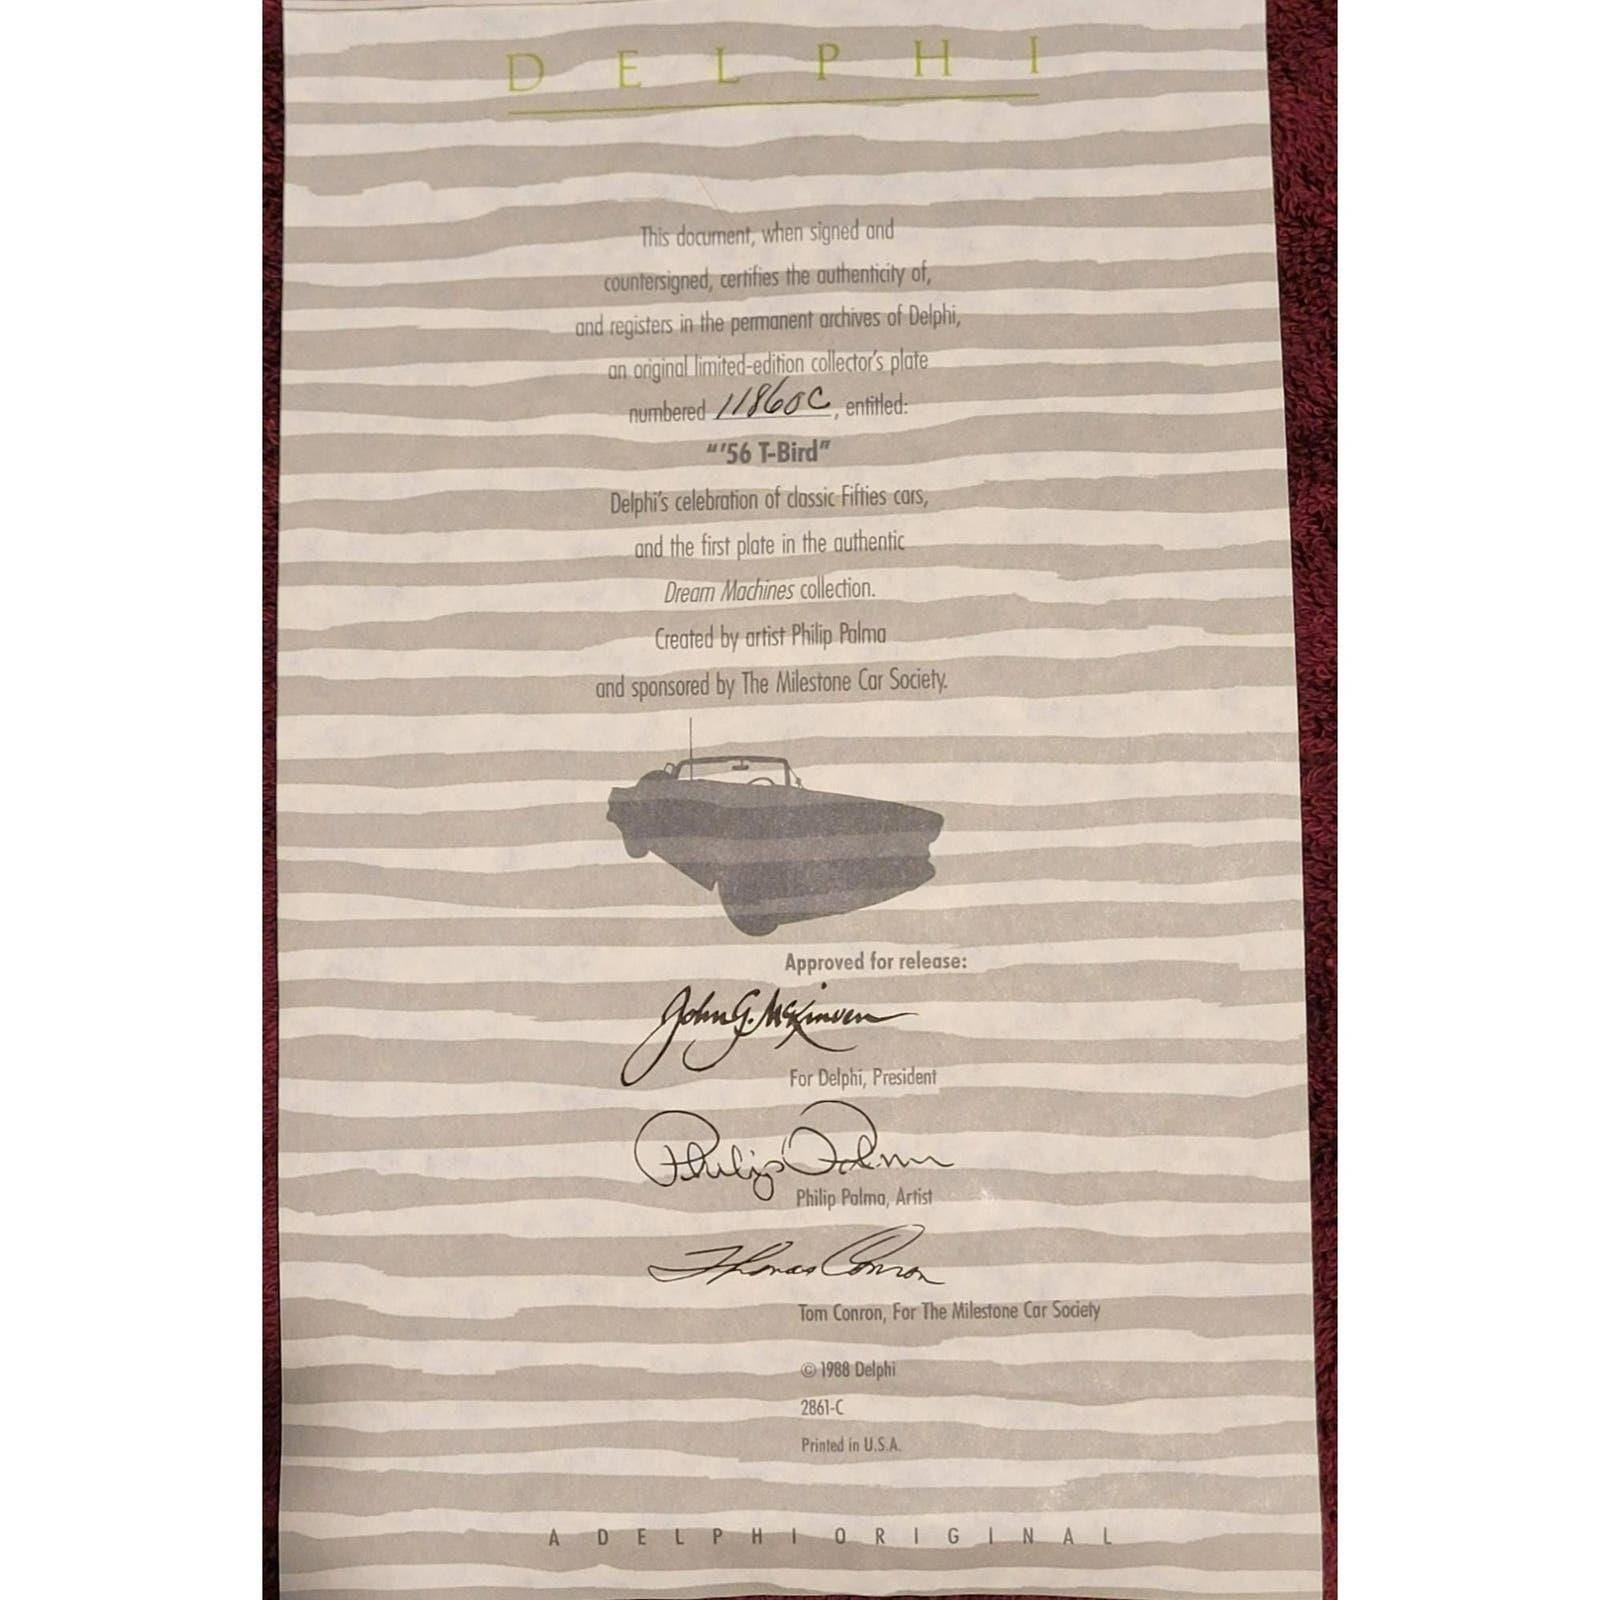 DELPHI
This document, when signed and
countersigned, certifies the authenticity of,
and registers in the permanent archives of Delphi,
an original limited-edition collector's plate
numbered 11860C, entitled:
"'56 T-Bird"
Delphi's celebration of classic Fifties cars,
and the first plate in the authentic
Dream Machines collection.
Created by artist Philip Palma
and sponsored by The Milestone Car Society.
Approved for release:
John G. McKinven
For Delphi, President
Philip Palma
Philip Palma, Artist
Thomas Conron
Tom Conron, For The Milestone Car Society
© 1988 Delphi
2861-C
Printed in U.S.A.
A DELPHI ORIGINAL